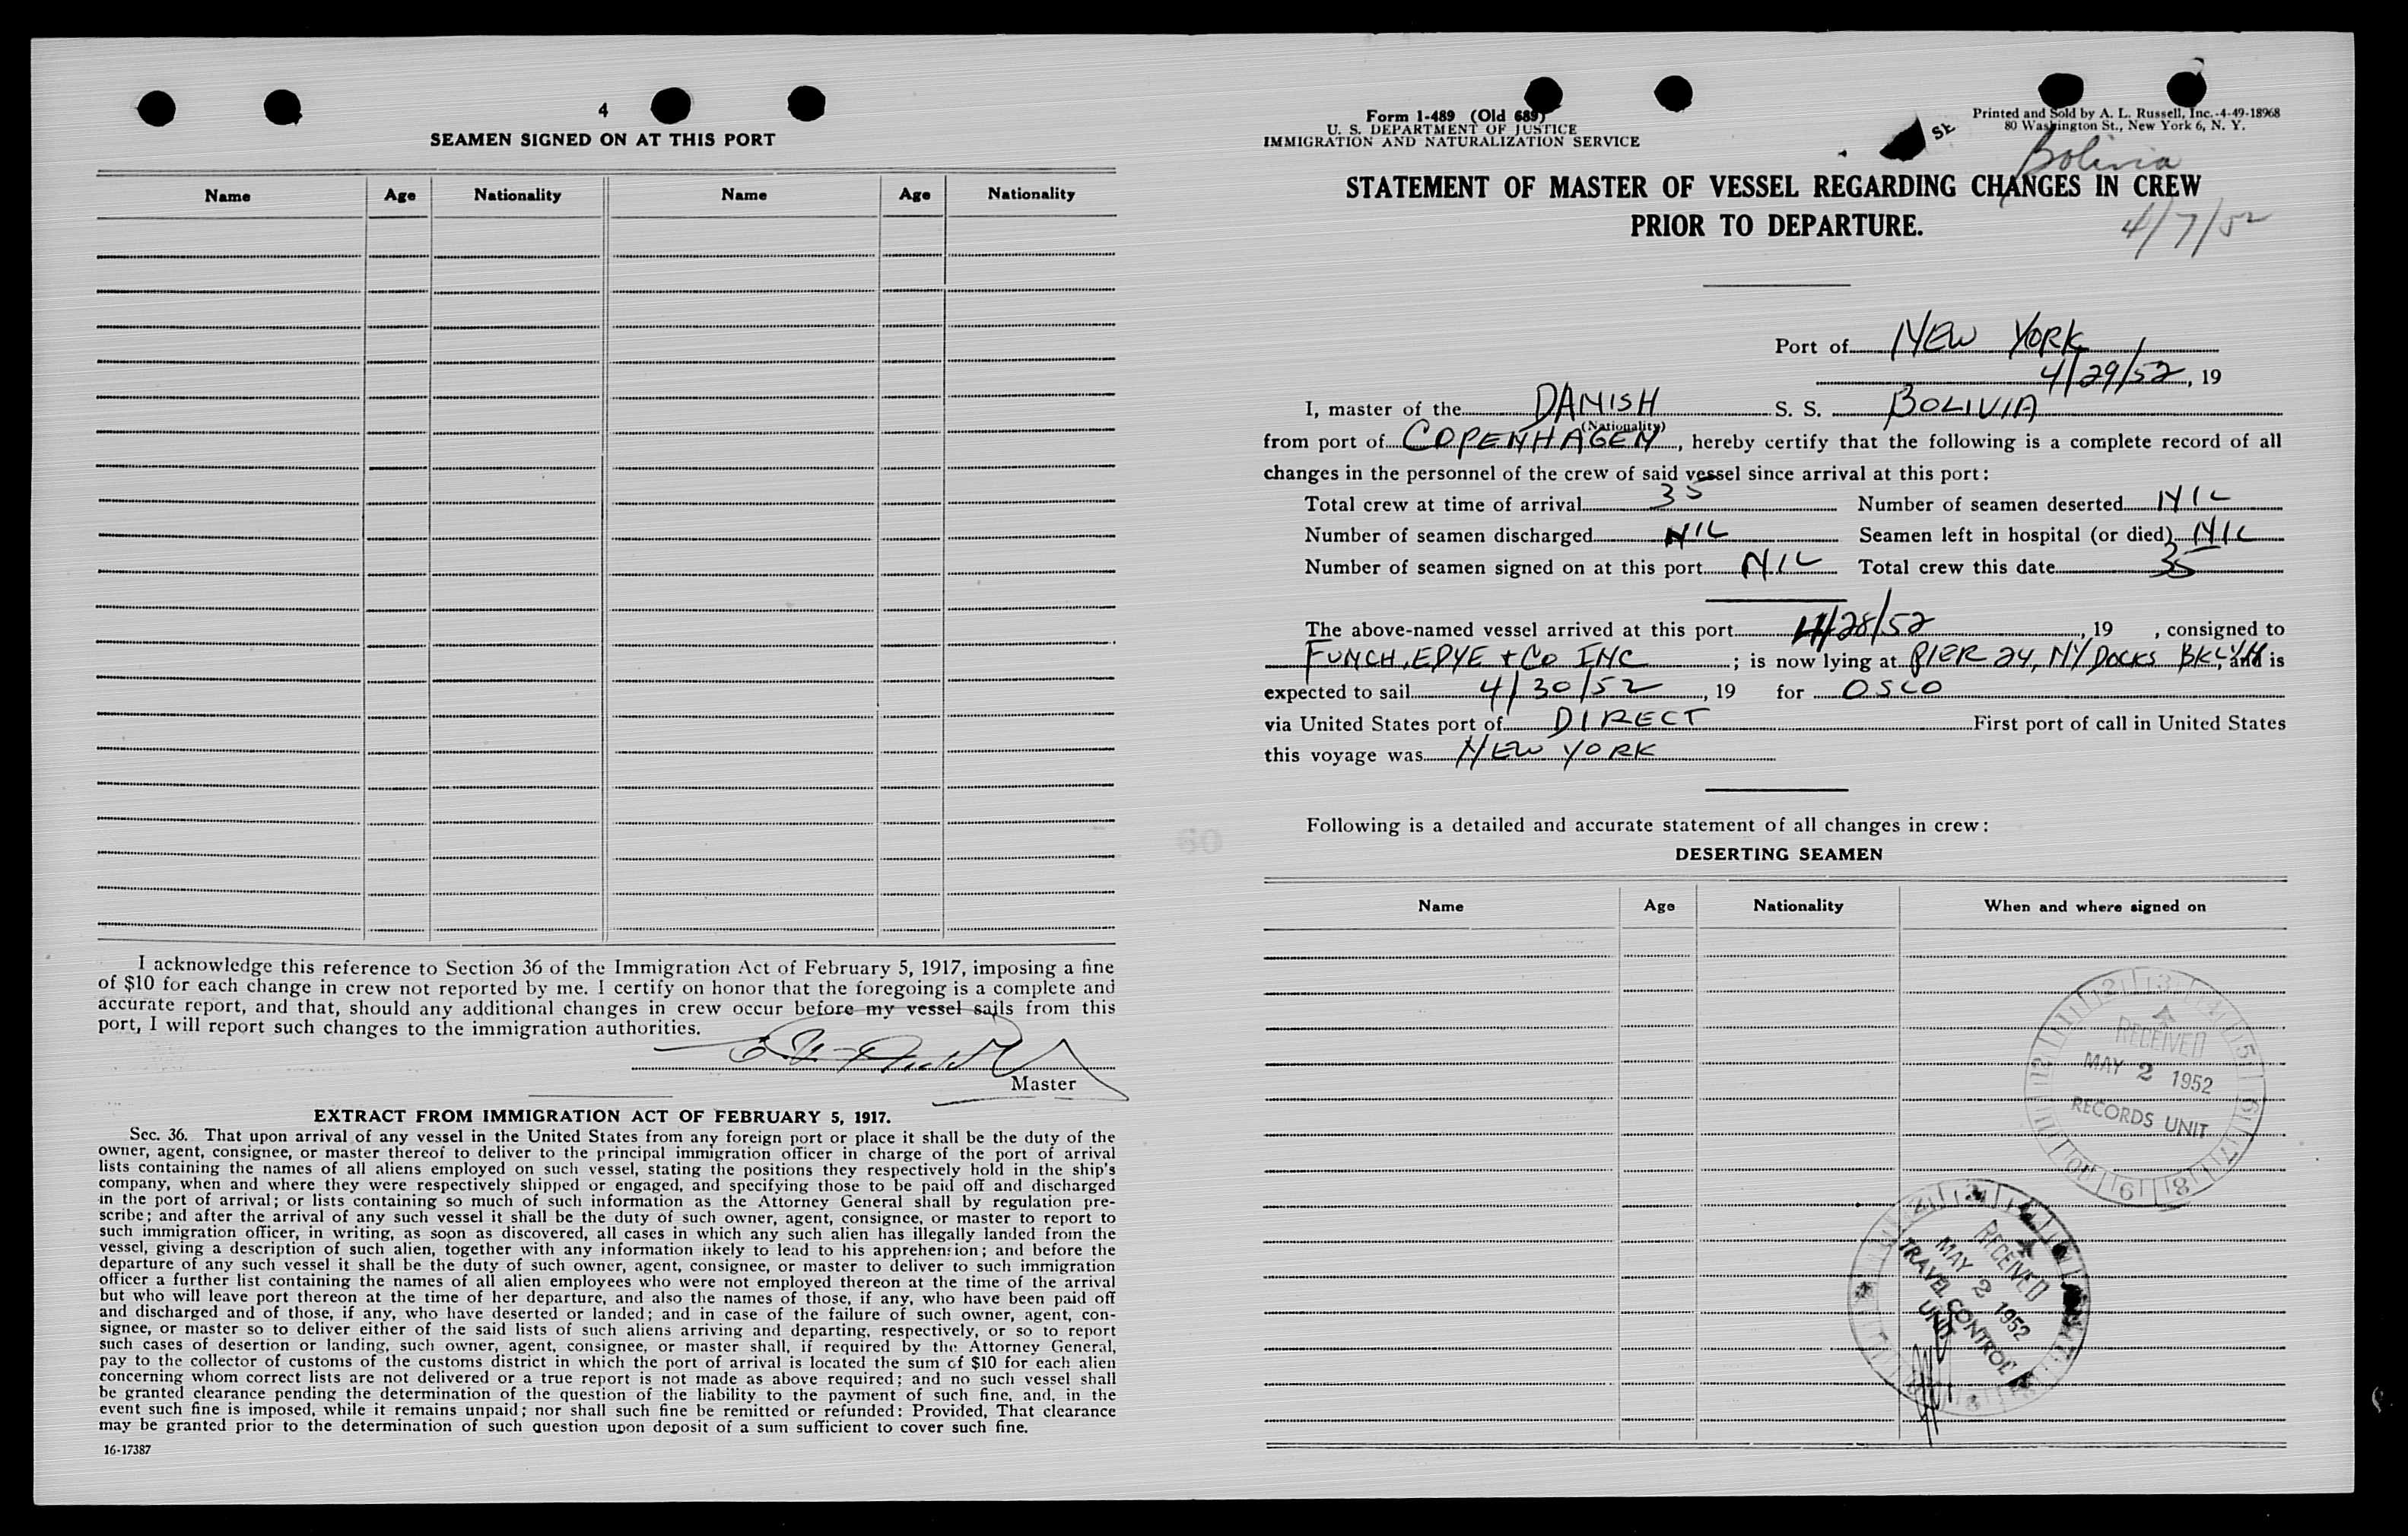 4
SEAMEN SIGNED ON AT THIS PORT
Name Age Nationality Name Age Nationality
I acknowledge this reference to Section 36 of the Immigration Act of February 5, 1917, imposing a fine
of $10 for each change in crew not reported by me. I certify on honor that the foregoing is a complete and
accurate report, and that, should any additional changes in crew occur before my vessel sails from this
port, I will report such changes to the immigration authorities.
Master
EXTRACT FROM IMMIGRATION ACT OF FEBRUARY 5, 1917.
Sec. 36. That upon arrival of any vessel in the United States from any foreign port or place it shall be the duty of the
owner, agent, consignee, or master thereof to deliver to the principal immigration officer in charge of the port of arrival
lists containing the names of all aliens employed on such vessel, stating the positions they respectively hold in the ship's
company, when and where they were respectively shipped or engaged, and specifying those to be paid off and discharged
in the port of arrival; or lists containing so much of such information as the Attorney General shall by regulation pre-
scribe; and after the arrival of any such vessel it shall be the duty of such owner, agent, consignee, or master to report to
such immigration officer, in writing, as soon as discovered, all cases in which any such alien has illegally landed from the
vessel, giving a description of such alien, together with any information likely to lead to his apprehension; and before the
departure of any such vessel it shall be the duty of such owner, agent, consignee, or master to deliver to such immigration
officer a further list containing the names of all alien employees who were not employed thereon at the time of the arrival
but who will leave port thereon at the time of her departure, and also the names of those, if any, who have been paid off
and discharged and of those, if any, who have deserted or landed; and in case of the failure of such owner, agent, con-
signee, or master so to deliver either of the said lists of such aliens arriving and departing, respectively, or so to report
such cases of desertion or landing, such owner, agent, consignee, or master shall, if required by the Attorney General,
pay to the collector of customs of the customs district in which the port of arrival is located the sum of $10 for each alien
concerning whom correct lists are not delivered or a true report is not made as above required; and no such vessel shall
be granted clearance pending the determination of the question of the liability to the payment of such fine, and, in the
event such fine is imposed, while it remains unpaid; nor shall such fine be remitted or refunded: Provided, That clearance
may be granted prior to the determination of such question upon deposit of a sum sufficient to cover such fine.
16-17387
Form I-489 (Old 689)
U. S. DEPARTMENT OF JUSTICE
IMMIGRATION AND NATURALIZATION SERVICE
Printed and Sold by A. L. Russell, Inc.-4-49-18968
80 Washington St., New York 6, N. Y.
Bolivia
STATEMENT OF MASTER OF VESSEL REGARDING CHANGES IN CREW
PRIOR TO DEPARTURE.
4/7/52
Port of NEW YORK
4/29/52, 19
I, master of the DANISH S. S. BOLIVIA
(Nationality)
from port of COPENHAGEN, hereby certify that the following is a complete record of all
changes in the personnel of the crew of said vessel since arrival at this port:
Total crew at time of arrival 35 Number of seamen deserted NIL
Number of seamen discharged NIL Seamen left in hospital (or died) NIL
Number of seamen signed on at this port NIL Total crew this date 35
The above-named vessel arrived at this port 4/28/52, 19 , consigned to
FUNCH, EDYE + CO INC; is now lying at PIER 24, NY DOCKS BKLYN, and is
expected to sail 4/30/52, 19 for OSLO
via United States port of DIRECT First port of call in United States
this voyage was NEW YORK
Following is a detailed and accurate statement of all changes in crew:
DESERTING SEAMEN
Name Age Nationality When and where signed on
RECEIVED
MAY 2 1952
RECORDS UNIT
RECEIVED
MAY 2 1952
TRAVEL CONTROL
UNIT